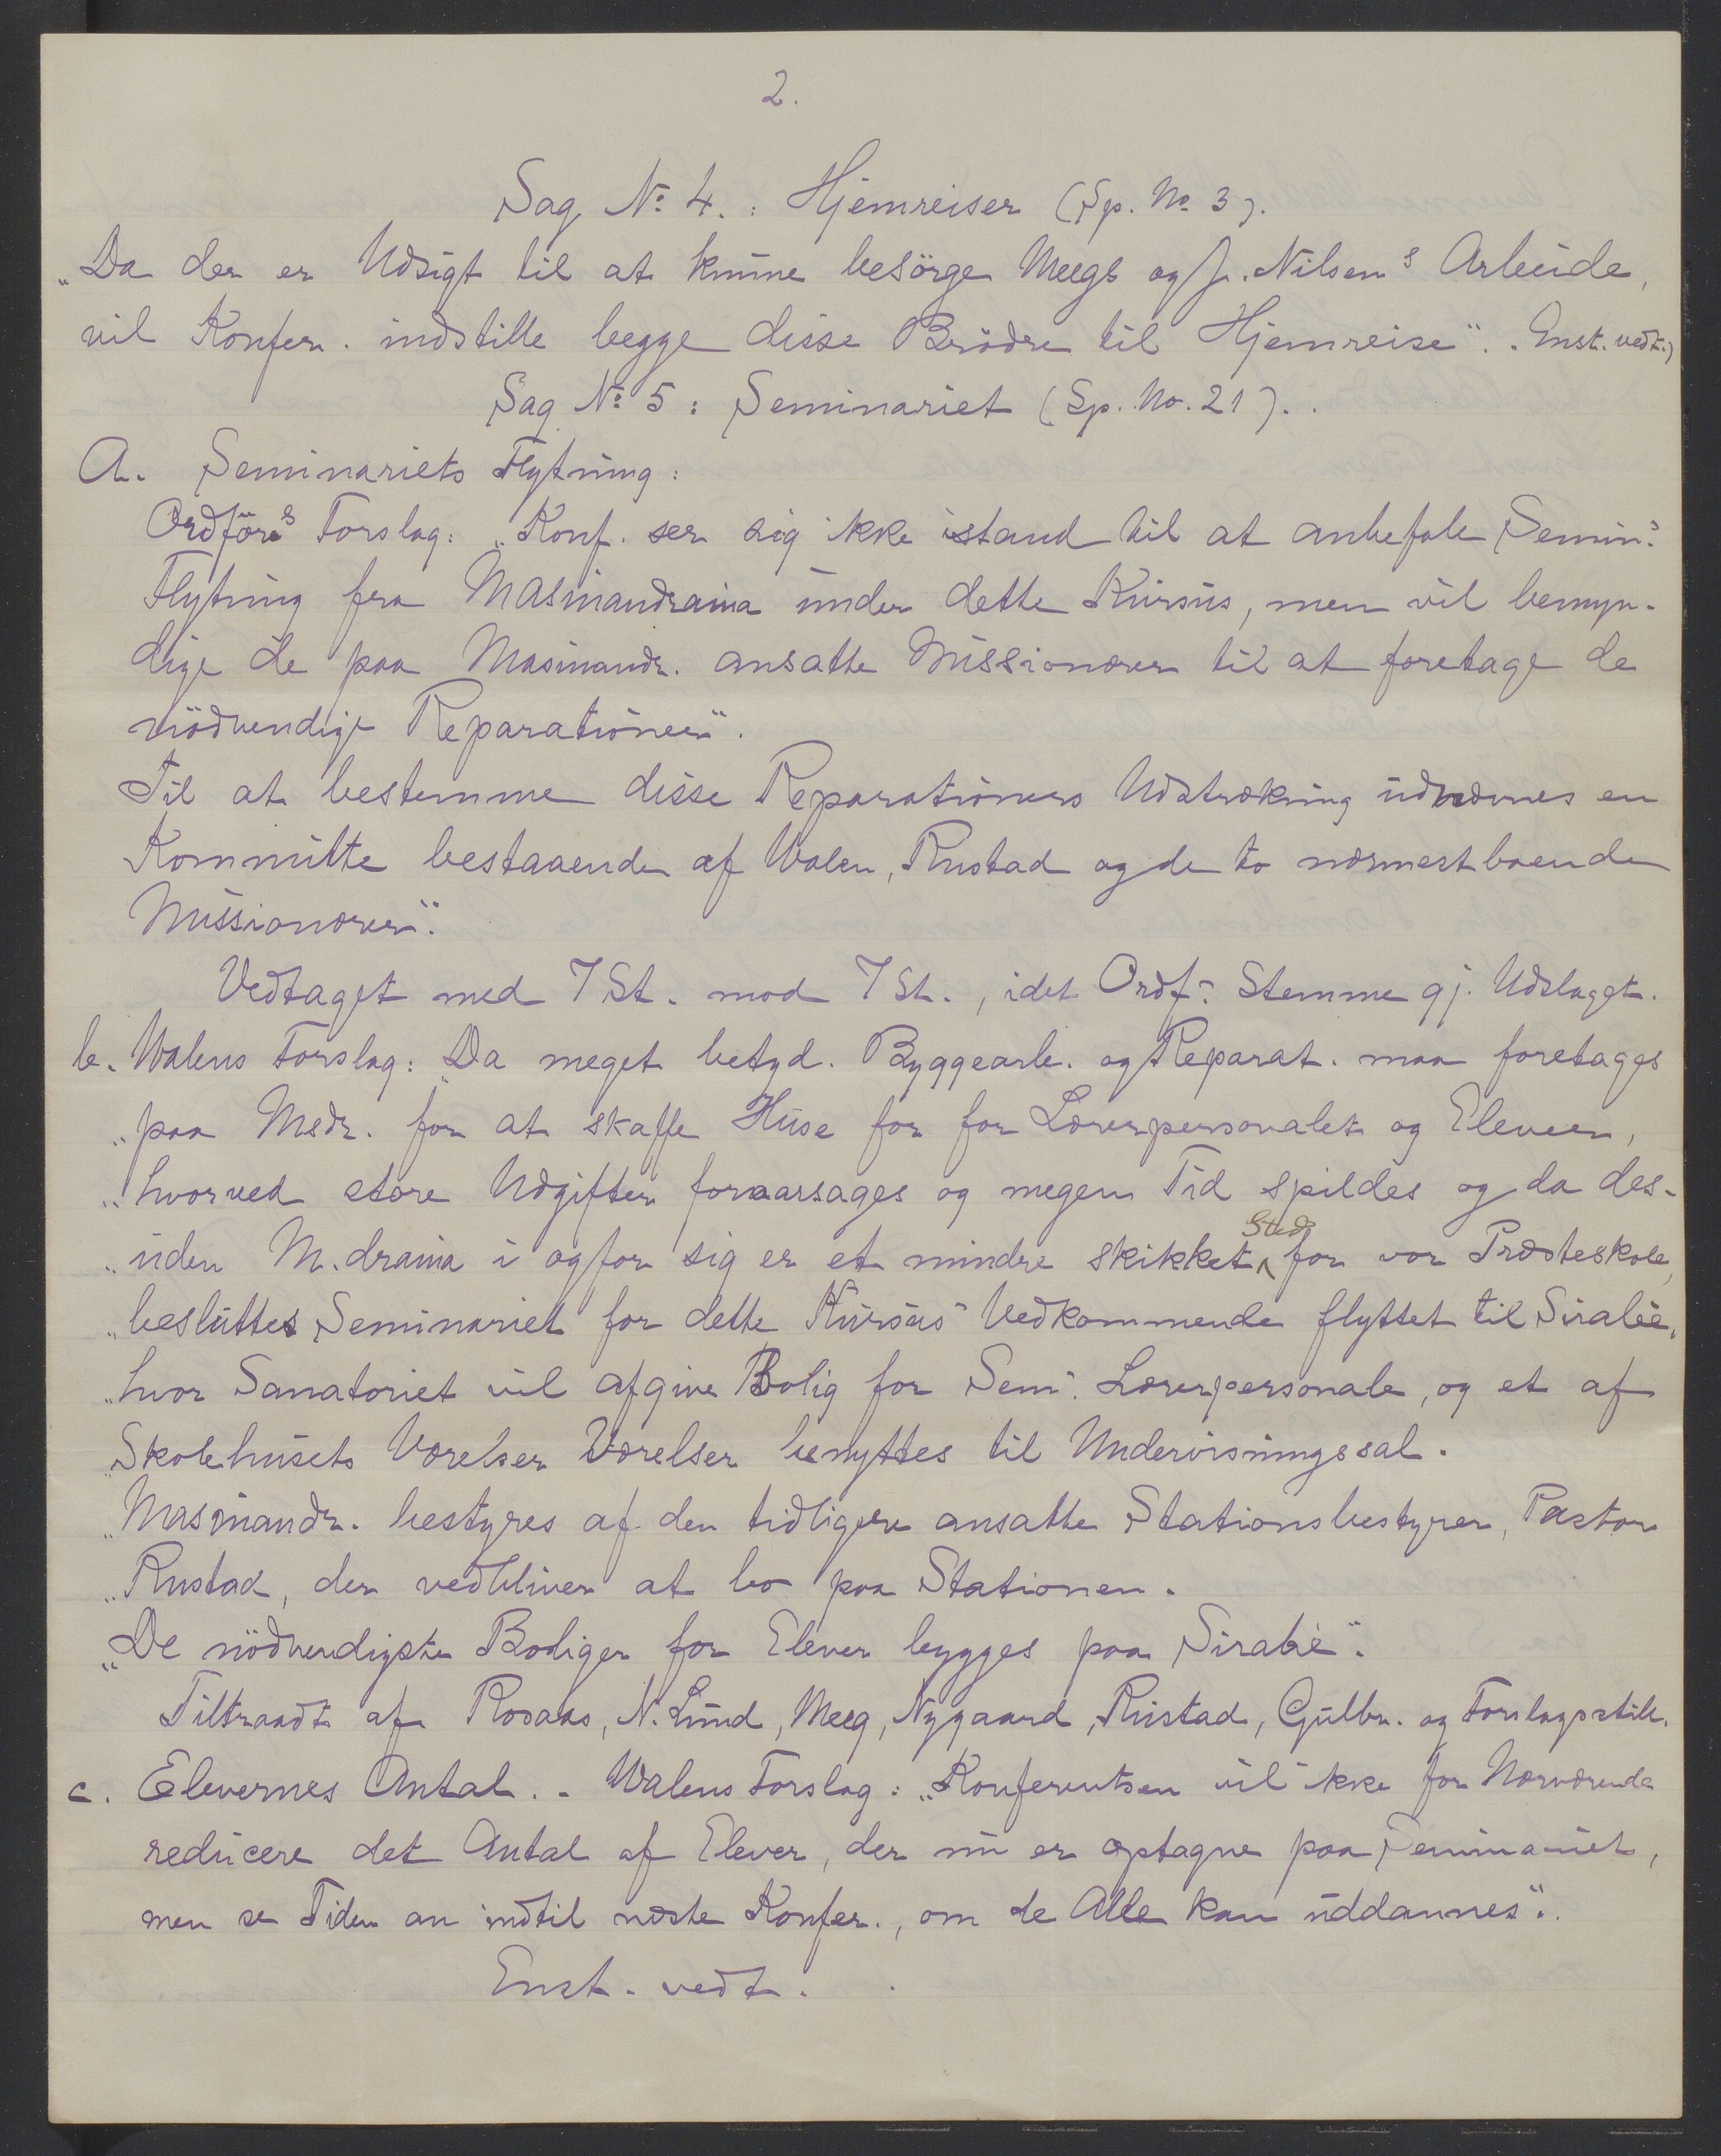 2.
Sag No 4. : Hjemreiser (Sp. No 3).
„Da der er Udsigt til at kunne besörge Meegs og J. Nilsens Arbeide,
vil Konfer. indstille begge disse Brödre til Hjemreise“. . Enst. vedt.)
Sag No 5 : Seminariet (Sp. No. 21). .
A. Seminariets Flytning :
Ordförs Forslag : „Konf. ser sig ikke istand til at anbefale Semin.s
Flytning fra Masinandraina under dette Kursus, men vil bemyn-
dige de paa Masinandr. ansatte Missionærer til at foretage de
nödvendige Reparationer“.
Til at bestemme disse Reparationers Udstrækning udnævnes en
Kommitte bestaaende af Walen, Rustad og de to nærmestboende
Missionærer“.
Vedtaget med 7 St. mod 7 St., idet Ordf.s Stemme gj. Udslaget.
b. Walens Forslag : „Da meget betyd. Byggearb. og Reparat. maa foretages
„paa Msdr. for at skaffe Huse for for Lærerpersonalet og Eleverer,
„hvorved store Udgifter foraarsages og megen Tid spildes og da des-
„uden M.draina i og for sig er et mindre skikket Sted for vor Præsteskole,
„besluttes Seminariet for dette Kursus Vedkommende flyttet til Sirabé,
„hvor Sanatoriet vil afgive Bolig for Sem.s Lærerpersonale, og et af
„Skolehusets Værelser Værelser benyttes til Undervisningssal.
„Masinandr. bestyres af den tidligere ansatte Stationsbestyrer, Pastor
„Rustad, der vedbliver at bo paa Stationen.
„De nödvendigste Boliger for Elever bygges paa Sirabé“.
Tiltraadt af Rosaas, N. Lund, Meeg, Nygaard, Rustad, Gulbr. og Forslagsstill.
c. Elevernes Antal. - Walens Forslag : „Konferentsen vil ikke for Nærværende
reducere det Antal af Elever, der nu er optagne paa Seminariet,
men se Tiden an indtil næste Konfer., om de Alle kan uddannes“.
Enst. vedt.